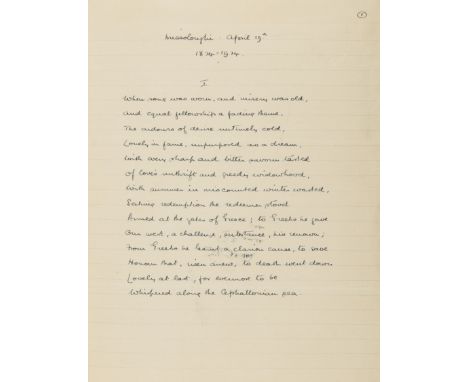 1
Missolonghi - April 19th
1824-1924.
I
When song was worn, and misery was old,
and equal fellowship a fading theme,
The ardours of desire untimely cold,
Lonely in fame, unpurposed as a dream,
With every sharp and bitter savour tasted
of love's unthrift and greedy widowhood,
With summer in miscounted winter wasted,
Seeking redemption the redeemer stood
Armed at the gates of Greece; to Greeks he gave
Gun, a challenge, substance, his renown;
From Greeks he a clarion cause, to save
Honour that, risen anew, to death went down
Lovely at last, for evermore to be
Whispered along the Cephallonian sea.